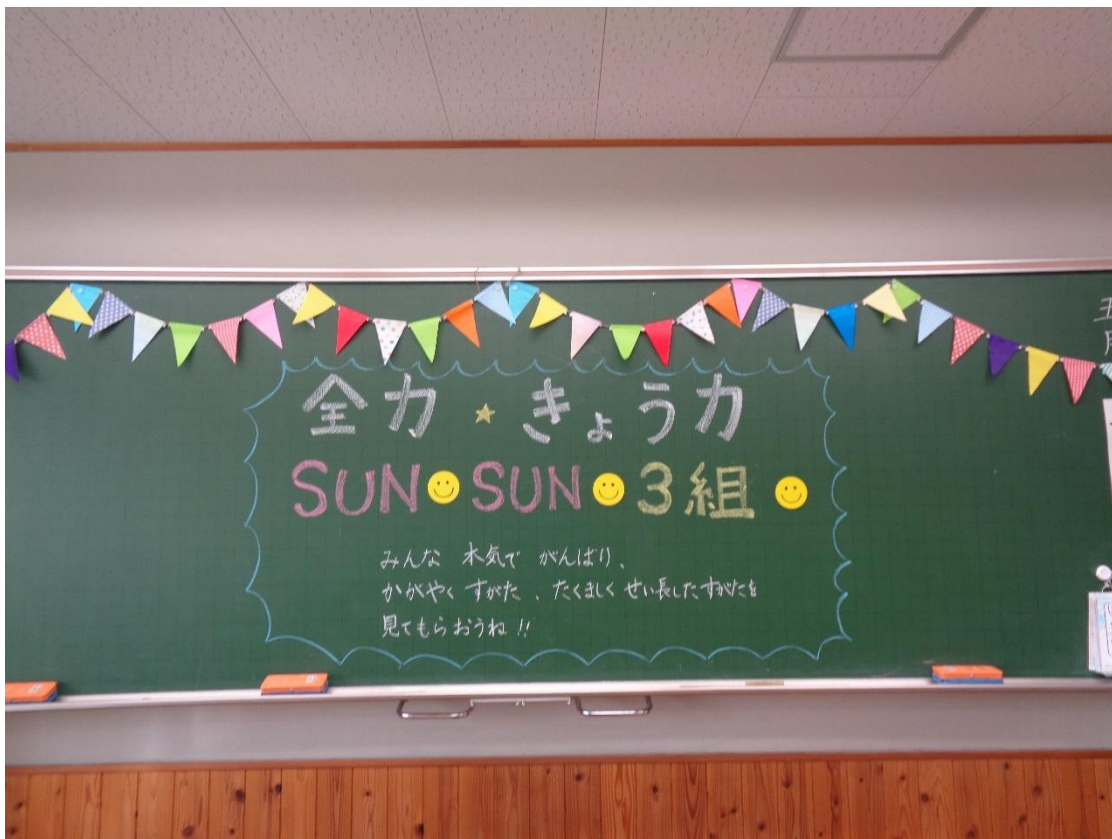 全力★きょう力
SUN SUN 3組
みんな 本気で がんばり、
かがやく すがた、たくましく せい長したすがたを
見てもらおうね!!